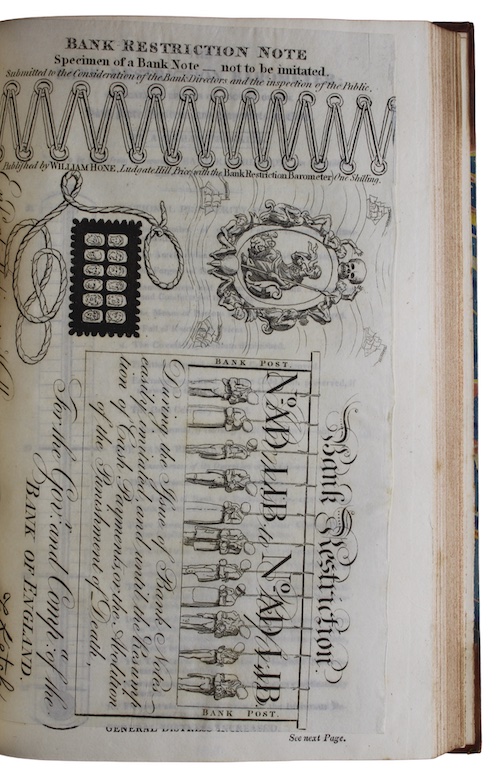 BANK RESTRICTION NOTE
Specimen of a Bank Note — not to be imitated.
Submitted to the Consideration of the Bank Directors and the inspection of the Public.
Published by WILLIAM HONE, Ludgate Hill Price with the Bank Restriction Barometer One Shilling.
Bank Restriction
BANK POST.
No. AD LIB. No. AD LIB.
BANK POST.
During the Issue of Bank Notes
easily imitated, and until the Resump
tion of Cash Payments, or the Abolition
of the Punishment of Death,
For the Govr. and Compa. of the
BANK OF ENGLAND.
GENERAL DISTRESS
See next Page.